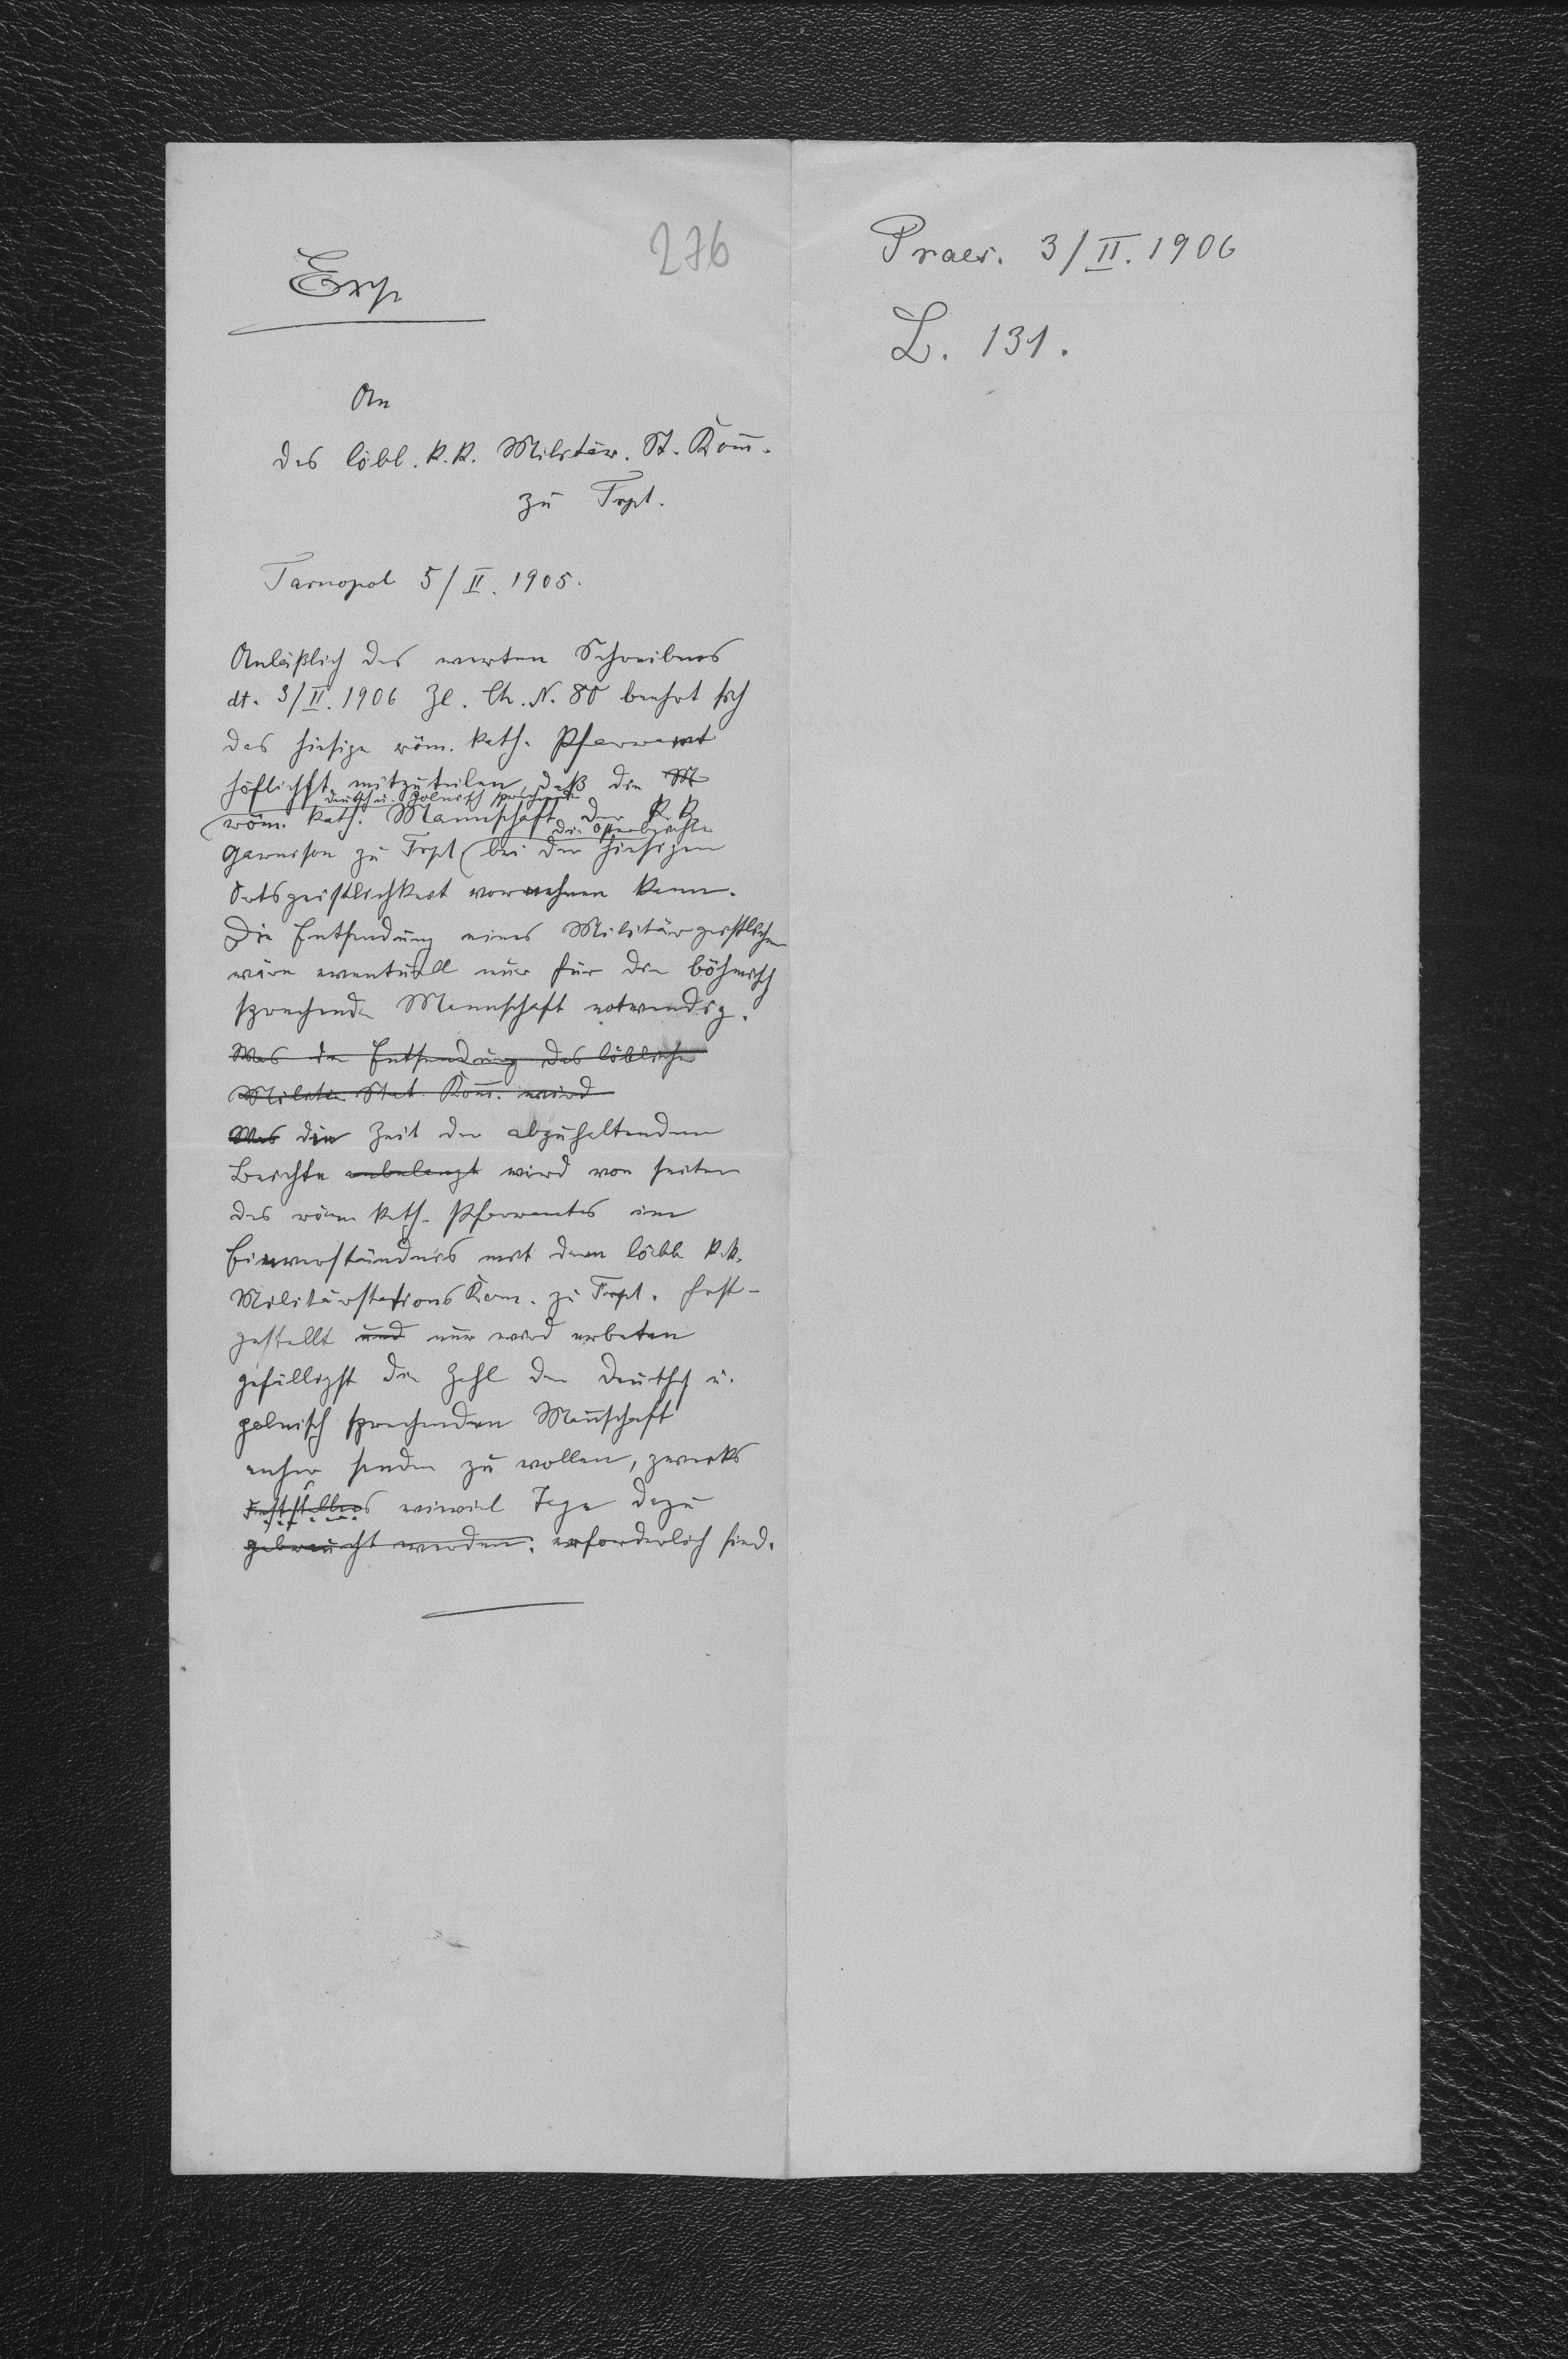 276
Exp
An
das löbl. k. k. Militär. St. Kom̄.
zu Trpl.
Tarnopol 5/II. 1905.
Anläßlich des werten Schreibens
dt. 3/II. 1906 Zl. Ch. N. 80 beehrt sich
das hiesige röm. kath. Pfarramt
höflichst mitzuteilen, daß die M
deutsch u. polnisch sprechende
röm. kath. Mannschaft der k. k.
die Osterbeichte
Garnison zu Trpl bei der hiesigen
Ortsgeistlichkeit vornehmen kann.
Die Entsendung eines Militärgeistlichen
wäre eventuell nur für die böhmisch
sprechende Mannschaft notwendig.
Was die Entsendung des löbliche
Militär Stat. Kom̄. wird
Was die Zeit der abzuhaltenden
Beichte anbelangt wird von seiten
des röm kath. Pfarramtes im
Einverständnis mit dem löbl. k. k.
Militärstations Kom. zu Trpl. fest-
gestellt und nur wird erbeten
gefälligst die Zahl der deutsch u.
polnisch sprechenden Man̄schaft
anher senden zu wollen, zwecks
wieviel Tage dazu
gebraucht werden. erforderlich sind.
Praes. 3/II. 1906
L. 131.